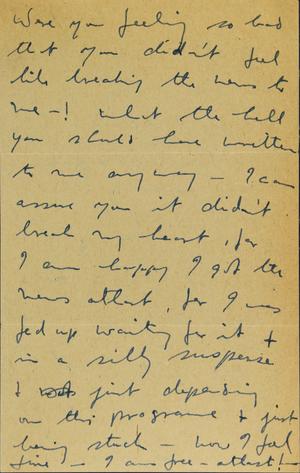 Were you feeling so bad
that you didn't feel
like breaking the news to
me –! What the hell
you should have written
to me anyway – I can
assure you it didn't
break my heart, for
I am happy I got the
news atlast, for I was
fed up waiting for it +
in a silly suspense
& just depending
on this programe + just
being stuck – now I feel
fine – I am free atlast!